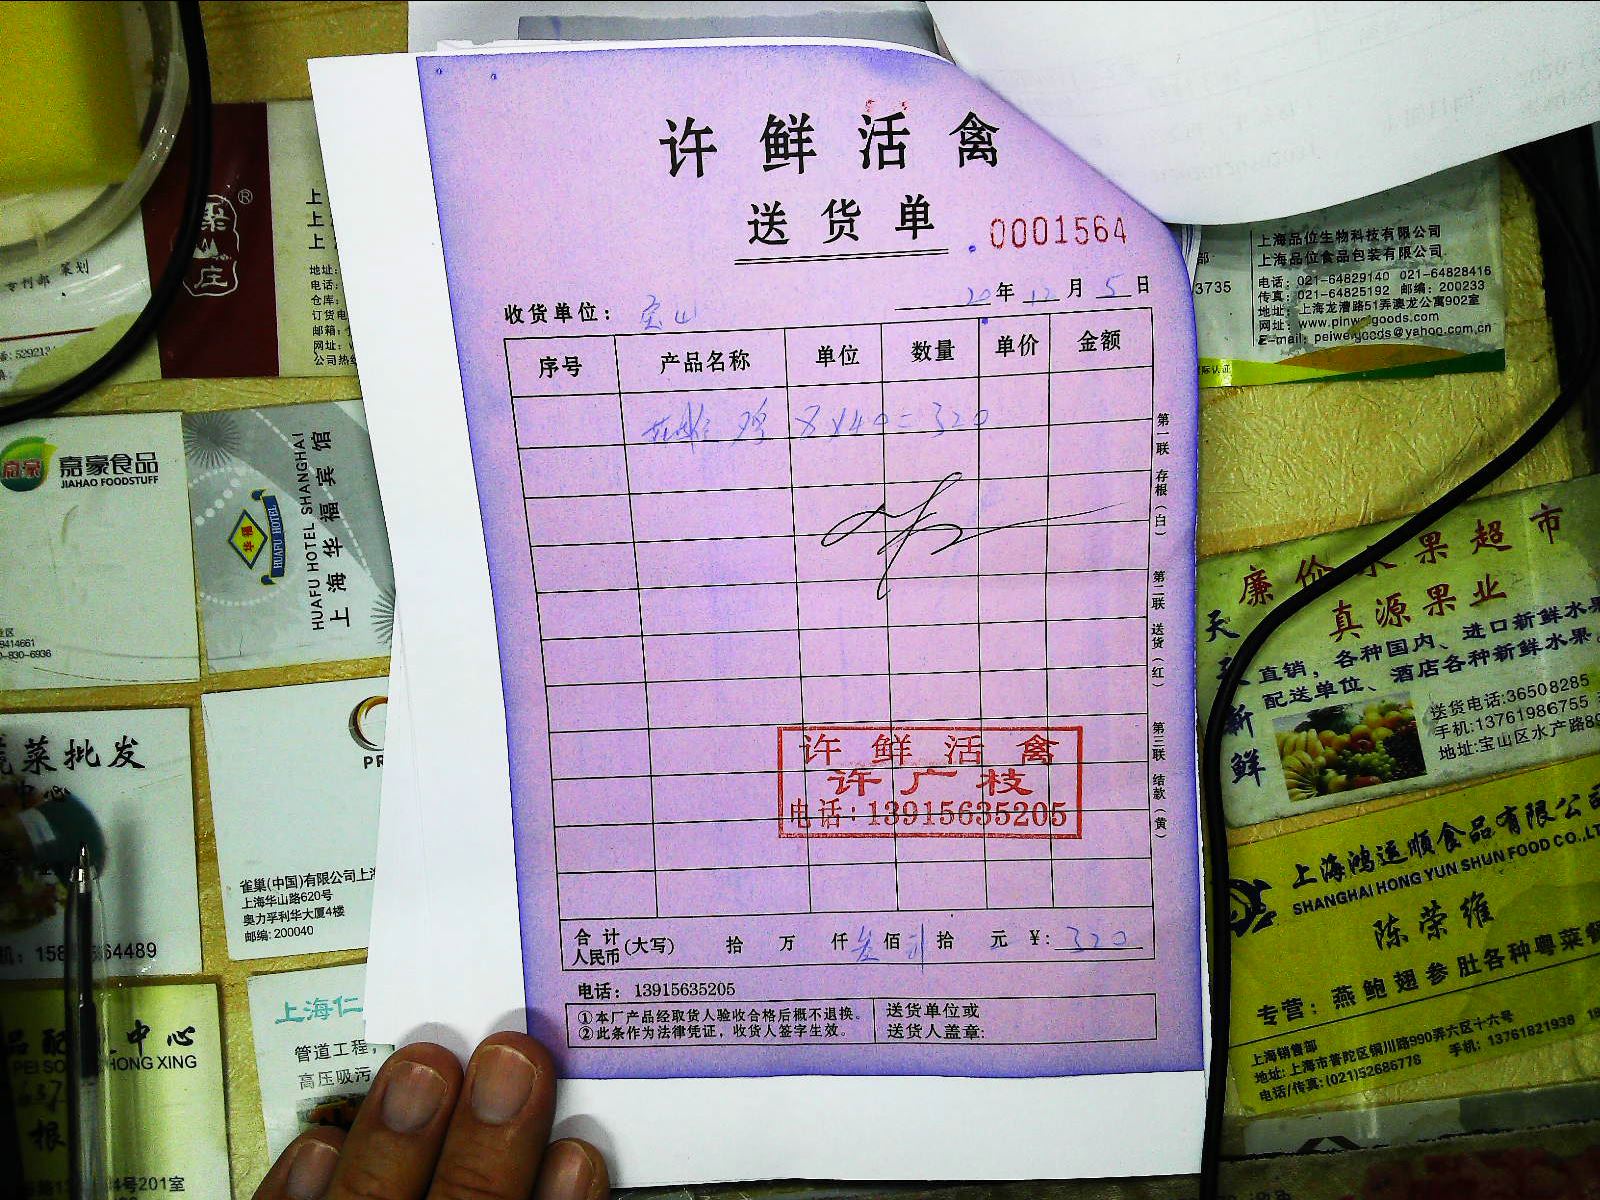 许鲜活禽
送货单
0001564
收货单位：宝山
20年12月5日
序号 产品名称 单位 数量 单价 金额
鸡 8×40=320
第一联 存根（白）
第二联 送货（红）
第三联 结款（黄）
许鲜活禽
许广枝
电话：13915635205
合计人民币(大写) 拾 万 仟叁佰贰拾 元 ¥: 320
电话：13915635205
①本厂产品经取货人验收合格后概不退换。
②此条作为法律凭证，收货人签字生效。
送货单位或
送货人盖章:
专刊部 策划
庄
®
嘉豪食品
JIAHAO FOODSTUFF
华福
HUAFU HOTEL
HUAFU HOTEL SHANGHAI
上海华福宾馆
菜批发
雀巢(中国)有限公司上海
上海华山路620号
奥力孚利华大厦4楼
邮编: 200040
上海仁
管道工程，
高压吸污
HONG XING
号201室
上海品位生物科技有限公司
上海品位食品包装有限公司
电话：021-64829140 021-64828416
传真：021-64825192 邮编：200233
地址：上海龙漕路51弄澳龙公寓902室
网址：www.pinweigoods.com
E-mail：peiweigoods@yahoo.com.cn
3735
廉价水果超市
真源果业
天天新鲜
直销，各种国内、进口新鲜水果
配送单位、酒店各种新鲜水果
送货电话:36508285
手机:13761986755
地址:宝山区水产路
上海鸿运顺食品有限公司
SHANGHAI HONG YUN SHUN FOOD CO.,LT
陈荣维
专营：燕鲍翅参肚各种粤菜
上海销售部
地址: 上海市普陀区铜川路990弄六区十六号
电话/传真: (021)52686778 手机：13761821938